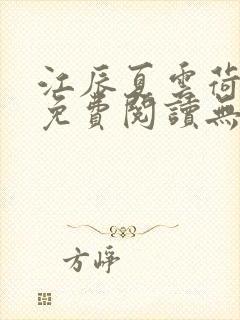 江辰夏雲荷
免費閱讀無
方崢